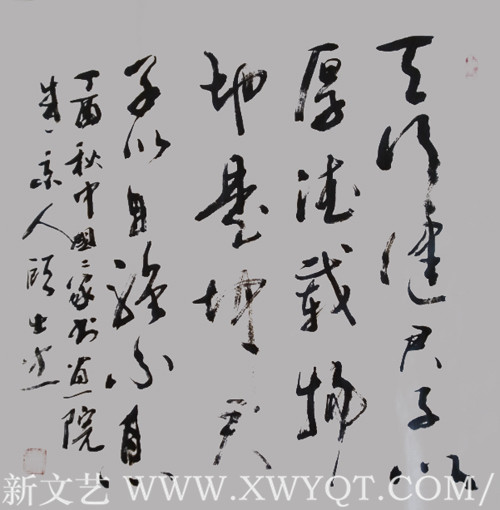 天行健君子以
厚德载物
地势坤君
子以自强不息
丁酉秋中國〻家书画院
京人
新文艺 WWW.XWYQT.COM/